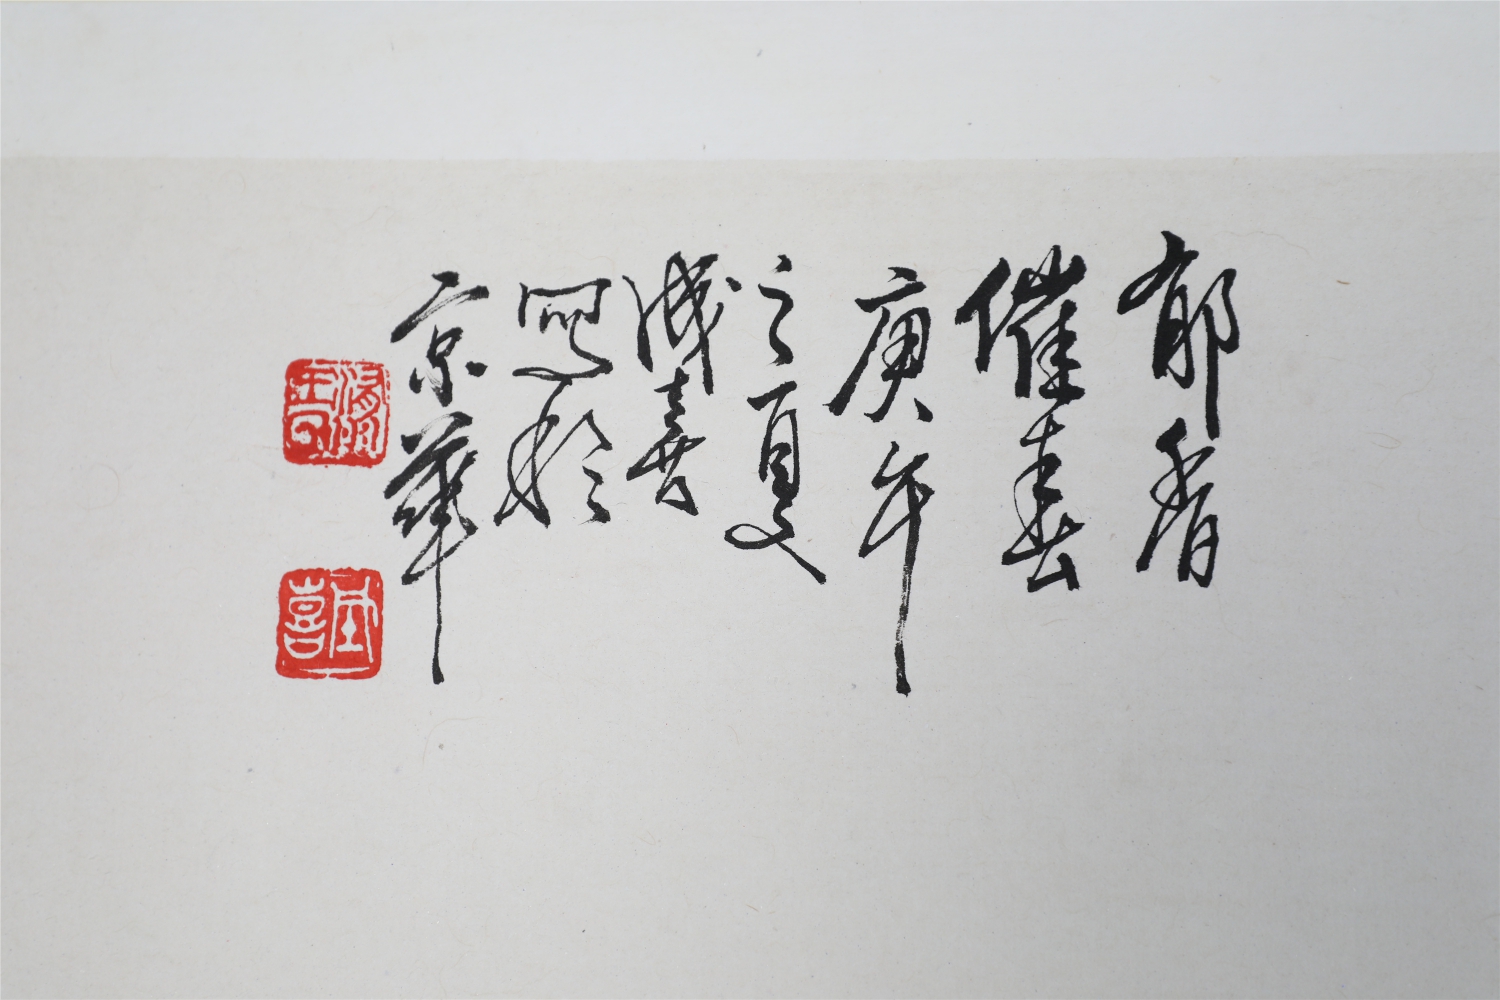 郁香
催春
庚午
之夏
成喜
寫於
京華
成喜